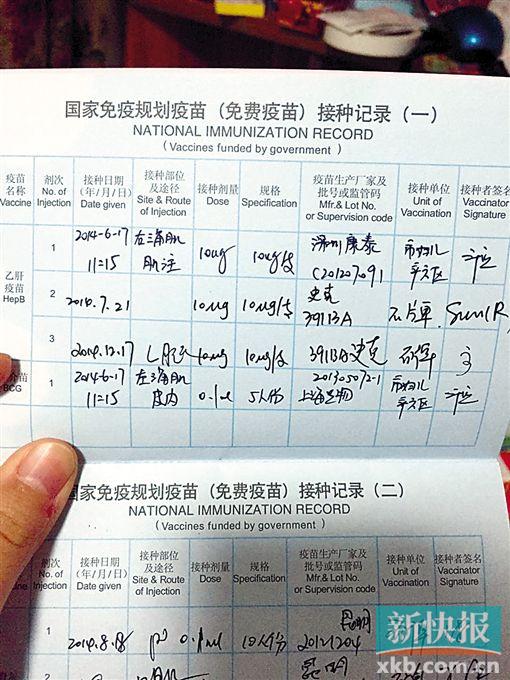 国家免疫规划疫苗（免费疫苗）接种记录（一）
NATIONAL IMMUNIZATION RECORD
( Vaccines funded by government )
疫苗名称 Vaccine 剂次 No. of Injection 接种日期 (年/月/日) Date given 接种部位及途径 Site & Route of Injection 接种剂量 Dose 规格 Specification 疫苗生产厂家及批号或监管码 Mfr.& Lot No. or Supervision code 接种单位 Unit of Vaccination 接种者签名 Vaccinator Signature
乙肝疫苗 HepB
1 2014-6-17 11:15 左三角肌 肌注 10ug 10ug/支 深圳康泰 C201207091
2 2014.7.21 10ug 10ug/支 史克 391BA
3 2014.12.17 10ug 10ug/支 391BA 史克
苗 BCG 1 2014-6-17 11:15 左三角肌 皮内 0.1ml 5人份 上海生物
国家免疫规划疫苗（免费疫苗）接种记录（二）
NATIONAL IMMUNIZATION RECORD
( Vaccines funded by government )
剂次 No. of Injection 接种日期 (年/月/日) Date given 接种部位及途径 Site & Route of Injection 接种剂量 Dose 规格 Specification 疫苗生产厂家及批号或监管码 Mfr.& Lot No. or Supervision code 接种单位 Unit of Vaccination 接种者签名 Vaccinator Signature
1 2014.8.18 10人份 昆明 20121204
昆明
新快报
xkb.com.cn